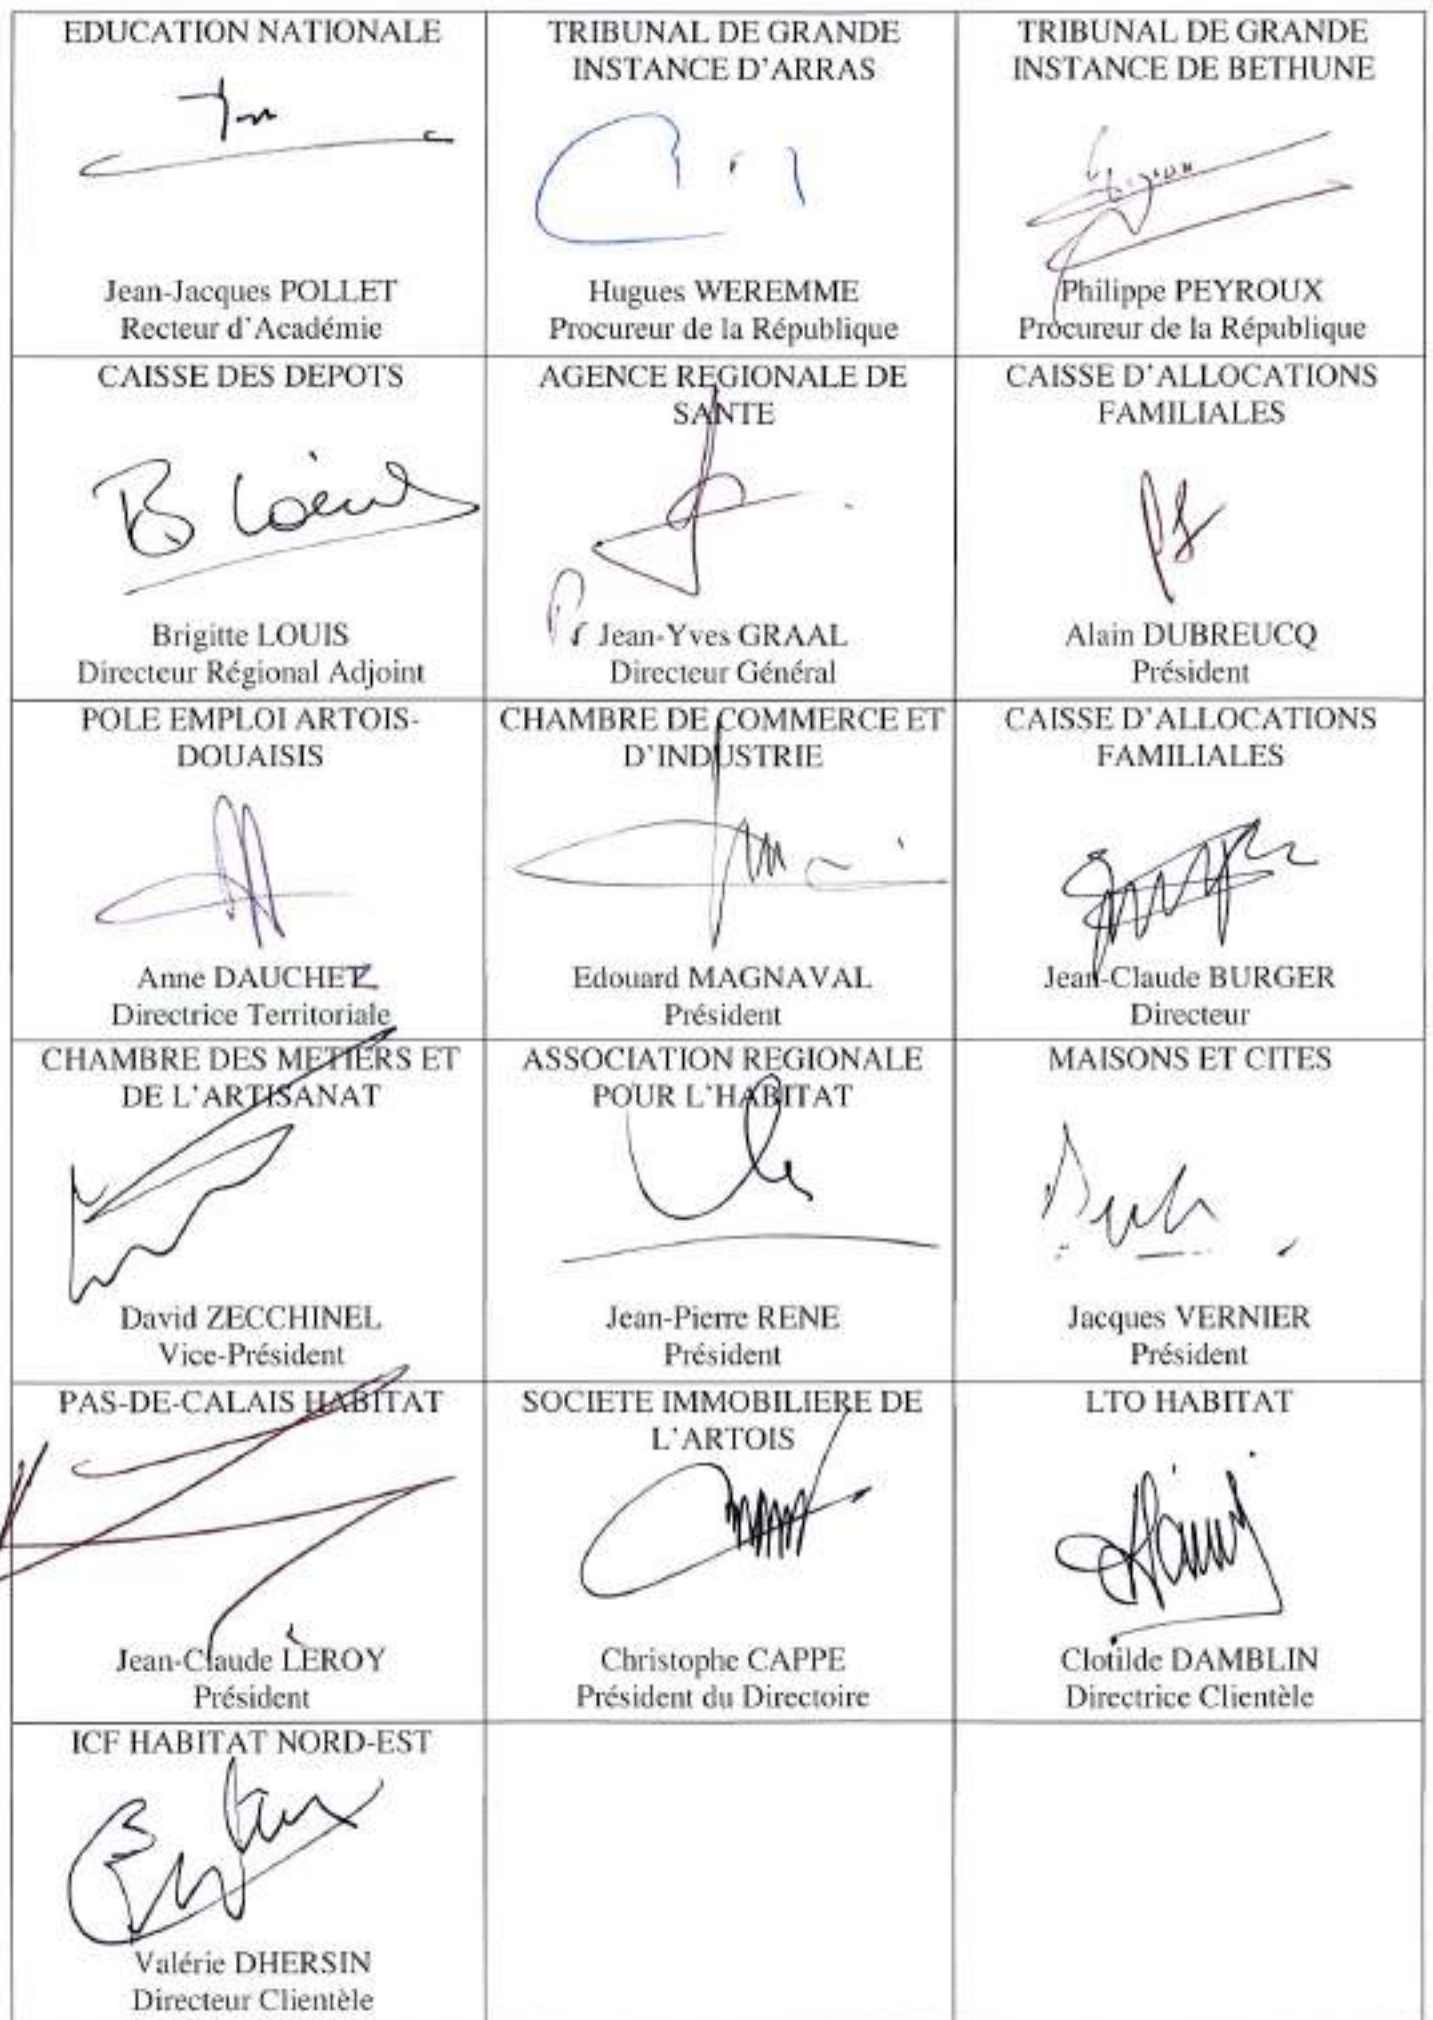 EDUCATION NATIONALE
Jean-Jacques POLLET
Recteur d'Académie
TRIBUNAL DE GRANDE
INSTANCE D'ARRAS
Hugues WEREMME
Procureur de la République
TRIBUNAL DE GRANDE
INSTANCE DE BETHUNE
Philippe PEYROUX
Procureur de la République
CAISSE DES DEPOTS
B Louis
Brigitte LOUIS
Directeur Régional Adjoint
AGENCE REGIONALE DE
SANTE
Jean-Yves GRAAL
Directeur Général
CAISSE D'ALLOCATIONS
FAMILIALES
Alain DUBREUCQ
Président
POLE EMPLOI ARTOIS-
DOUAISIS
Anne DAUCHEZ
Directrice Territoriale
CHAMBRE DE COMMERCE ET
D'INDUSTRIE
Edouard MAGNAVAL
Président
CAISSE D'ALLOCATIONS
FAMILIALES
Jean-Claude BURGER
Directeur
CHAMBRE DES METIERS ET
DE L'ARTISANAT
David ZECCHINEL
Vice-Président
ASSOCIATION REGIONALE
POUR L'HABITAT
Jean-Pierre RENE
Président
MAISONS ET CITES
Jacques VERNIER
Président
PAS-DE-CALAIS HABITAT
Jean-Claude LEROY
Président
SOCIETE IMMOBILIERE DE
L'ARTOIS
Christophe CAPPE
Président du Directoire
LTO HABITAT
Clotilde DAMBLIN
Directrice Clientèle
ICF HABITAT NORD-EST
Valérie DHERSIN
Directeur Clientèle